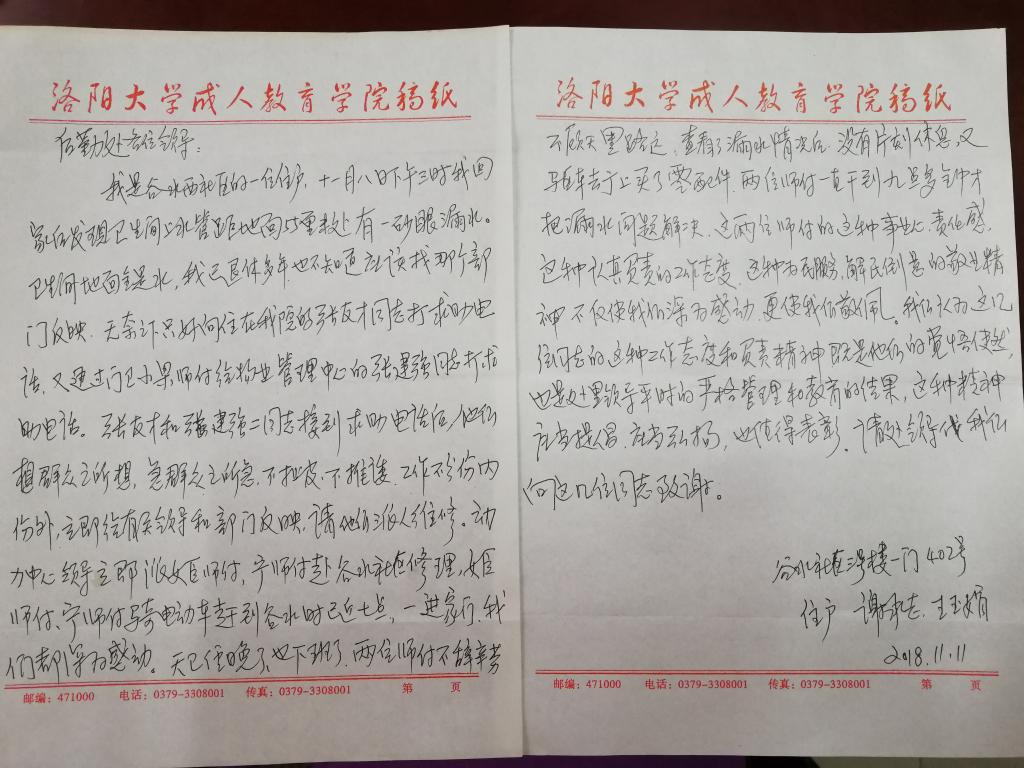 洛阳大学成人教育学院稿纸
后勤处各位领导：
我是谷水西社区的一位住户，十一月八日下午三时我回
家后发现卫生间上水管距地面约十里米处有一砂眼漏水。
卫生间地面全是水，我已退休多年也不知道应该找那个部
门反映，无奈之下只好向住在我院的张友才同志打求助电
话，又通过门卫小果师付给物业管理中心的张建强同志打求
助电话。张友才和张建强二同志接到求助电话后，他们
想群众之所想，急群众之所急，不扯皮、不推诿，工作不分份内
份外，立即给有关领导和部门反映，请他们派人维修。动
力中心领导立即派姬师付，宁师付赴谷水社区修理，姬
师付、宁师付骑电动车赶到谷水时已近七点，一进家门，我
们都深为感动。天已经晚了，也下班了，两位师付不辞辛劳
邮编：471000 电话：0379-3308001 传真：0379-3308001 第 页
洛阳大学成人教育学院稿纸
不顾天黑路远，查看了漏水情况后，没有片刻休息，又
骑车去街上买了零配件，两位师付一直干到九点多钟才
把漏水问题解决，这两位师付的这种事业心、责任感，
这种认真负责的工作态度，这种为民服务，解民倒悬的敬业精
神不仅使我们深为感动，更使我们敬佩。我们认为这几
位同志的这种工作态度和负责精神既是他们的觉悟使然，
也是处里领导平时的严格管理和教育的结果，这种精神
应当提倡，应当弘扬，也值得表彰，请处领导代我们
向这几位同志致谢。
谷水社区三号楼一门402号
住户 谢承志、王玉娟
2018.11.11
邮编：471000 电话：0379-3308001 传真：0379-3308001 第 页